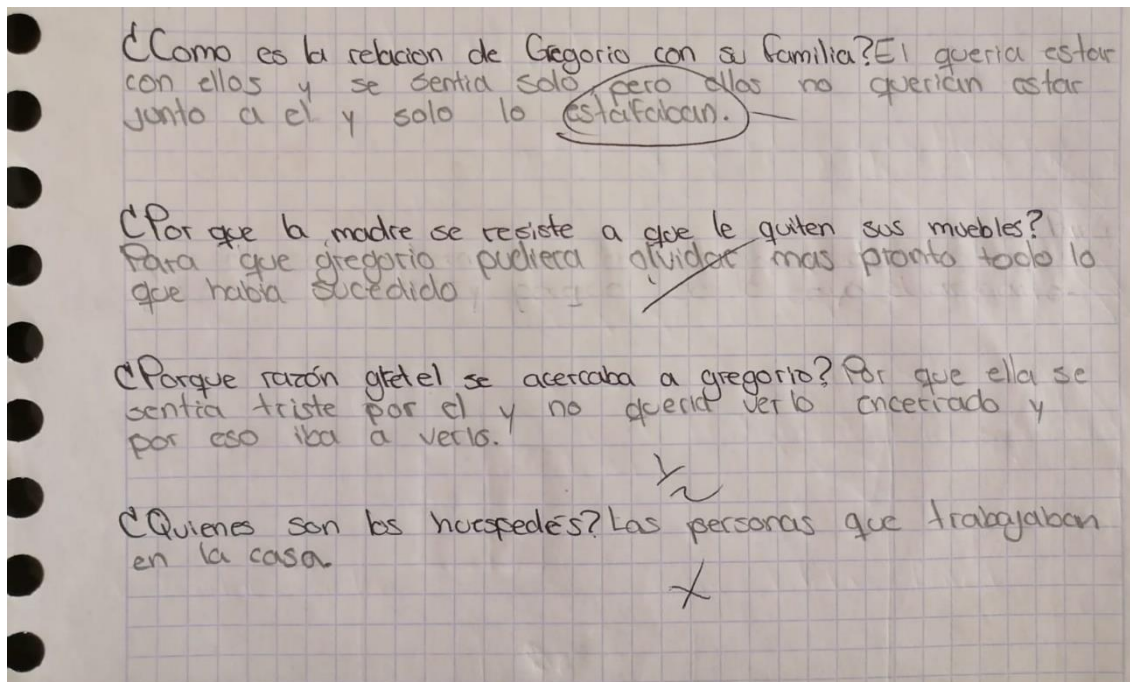 ¿Como es la relacion de Gregorio con su familia? El queria estar
con ellos y se sentia solo, pero ellos no querian estar
junto a el y solo lo estafaban.
¿Por que la madre se resiste a que le quiten sus muebles?
Para que gregorio pudiera olvidar mas pronto todo lo
que habia sucedido
¿Porque razón gretel se acercaba a gregorio? Por que ella se
sentia triste por el y no queria verlo encerrado y
por eso iba a verlo.
½
¿Quienes son los huespedes? Las personas que trabajaban
en la casa
X